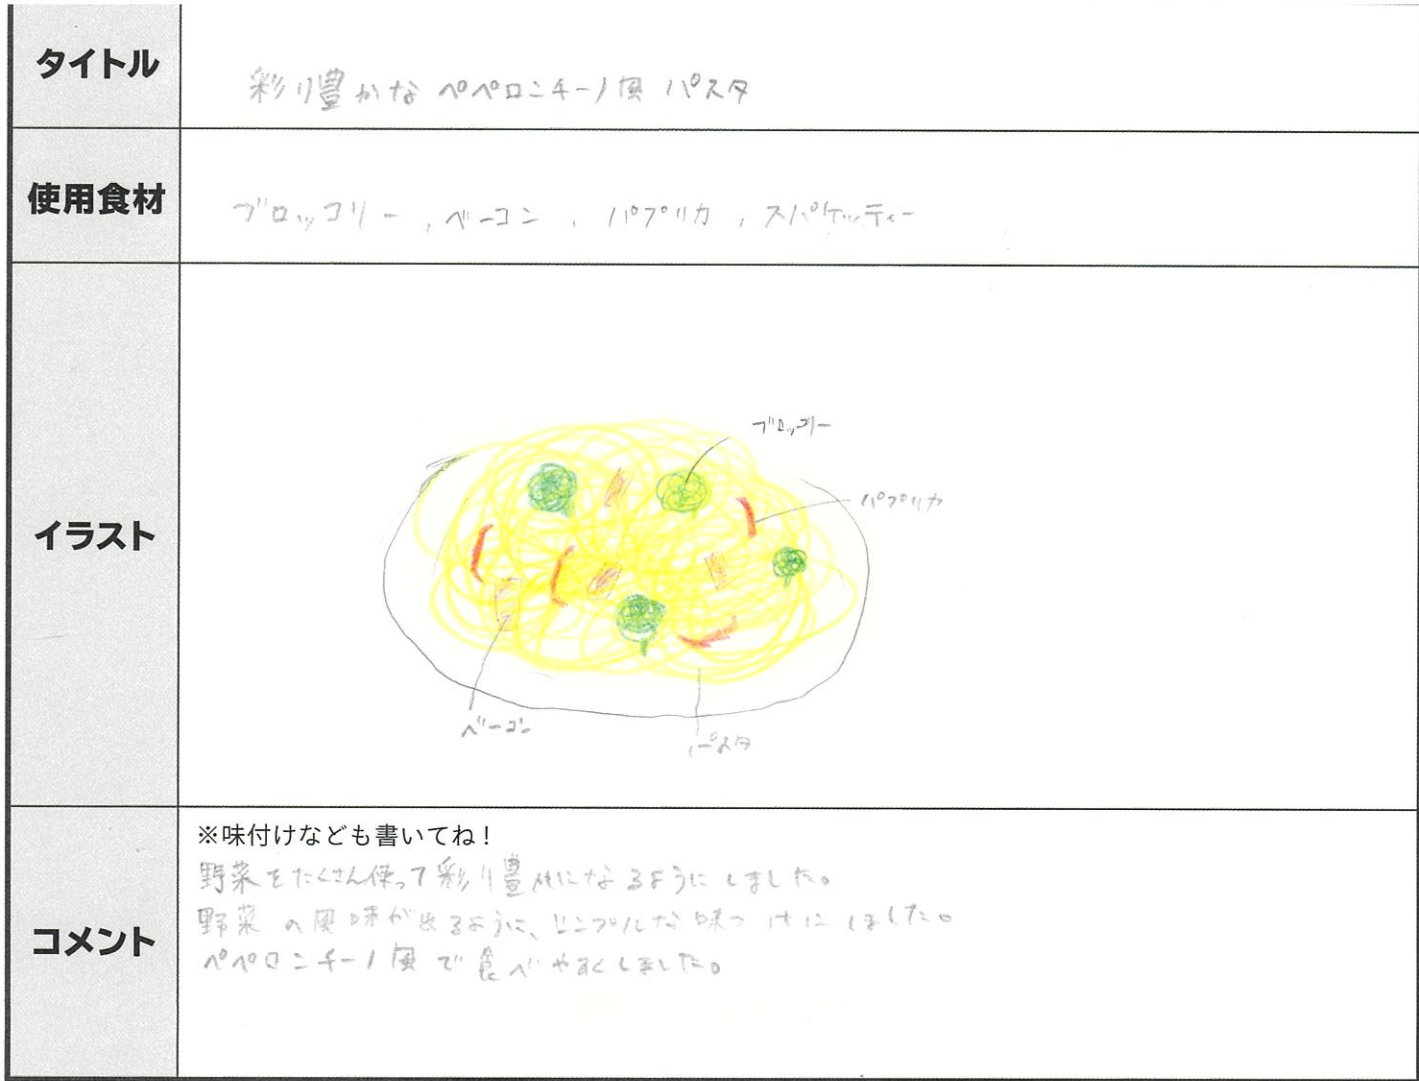 タイトル
彩り豊かなペペロンチーノ風パスタ
使用食材
ブロッコリー,ベーコン,パプリカ,スパゲッティー
イラスト
ブロッコリー
パプリカ
ベーコン
パスタ
コメント
※味付けなども書いてね!
野菜をたくさん使って彩り豊かになるようにしました。
野菜の風味が出るように、シンプルな味つけにしました。
ペペロンチーノ風で食べやすくしました。